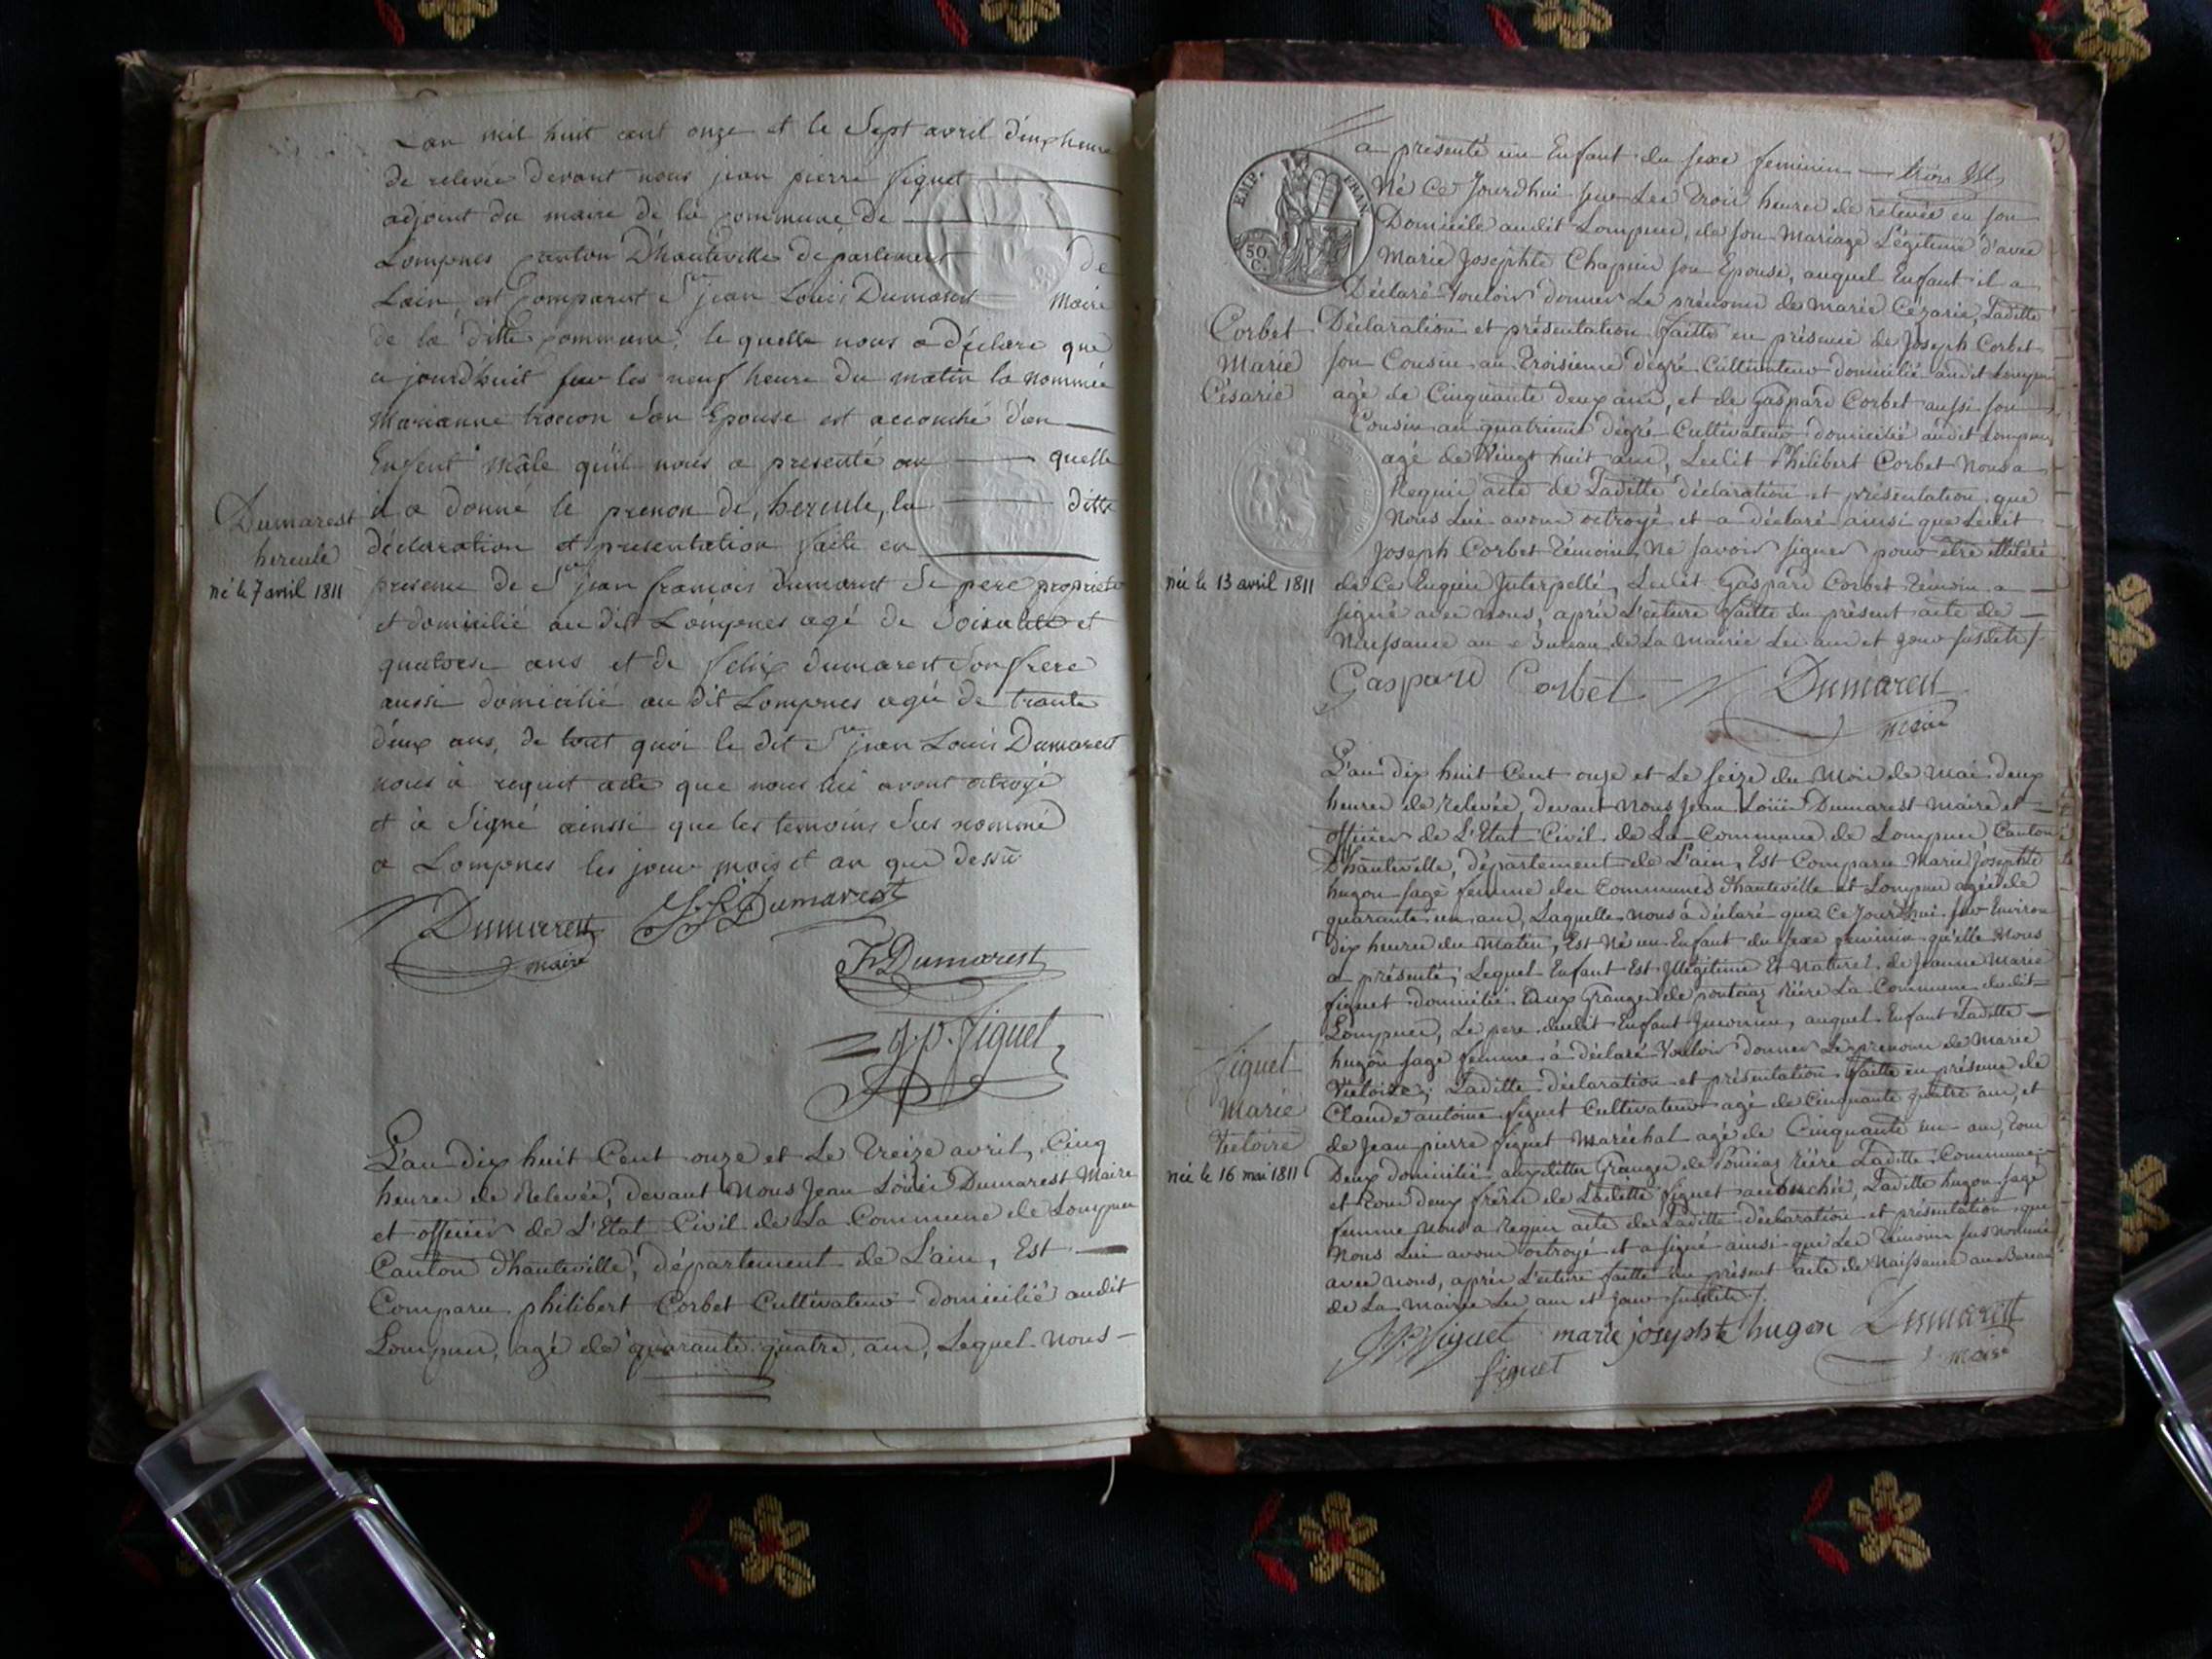 Lan mil huit cent onze et le Sept avril deux heure
de relevée devant nous jean pierre figuet
adjoint du maire de la commune de
Lompnes canton D'hauteville departement de
Lain, est Comparut Sr jean Louis Dumarest Maire
de la ditte commune, le quelle nous a déclare que
ce jourd'huit sur les neuf heure du matin la nommée
Marianne Son Epouse est accouché d'un
Enfent mâle qu'il nous a presenté au quelle
il a donné le prenom de, hercule, la ditte
déclaration et presentation faite en
presence de Sr jean françois dumarest Se pere propriete
et domicilié au dit Lompnes agé de Soixante et
quatorse ans et de felix dumarest Son frere
aussi domicilié au dit Lompnes agé de trante
deux ans, de tout quoi le dit Sr jean Louis Dumarest
nous à requit acte que nous lui avont octroyé
et à Signé ainssi que les temoins Sus nommé
a Lompnes les jour mois et an que dessu
Dumarest
hercule
né le 7 avril 1811
Dumarest
maire
Dumarest
F Dumarest
j.p. figuet
L'an dix huit Cent onze et Le treize avril, Cinq
heures de Relevée, devant Nous Jean Loüis Dumarest Maire
et officier de L'Etat Civil de La Commune de Lompnes
Canton d'hauteville, département de L'ain, Est
Comparu philibert Corbet Cultivateur domicilié audit
Lompnes, agé de quarante quatre ans, Lequel Nous
a présenté un Enfant du sexe feminin
Né Ce Jourdhui sur Les trois heures de relevée en son
Domicile audit Lompnes, de son Mariage Légitime d'avec
Marie Josephte Chapuis son Epouse, auquel Enfant il a
Déclaré Vouloir donner Le prénoms de Marie Cézarie, Laditte
Déclaration et présentation faitte en présence de Joseph Corbet
son Cousin au troisieme dégré Cultivateur domicilié audit Lompnes
agé de Cinquante deux ans, et de Gaspard Corbet aussi son
Cousin au quatrieme dégré Cultivateur domicilié audit Lompnes
agé de Vingt huit ans, Ledit Philibert Corbet Nous a
Requis acte de Laditte déclaration et présentation que
Nous Lui avons octroyé et a déclaré ainsi que Ledit
Joseph Corbet témoin, Ne savoir signer pour être illitéré
de Ce Enquis Interpellé, Ledit Gaspard Corbet témoin a
signé avec nous, après L'ecture faitte du présent acte de
Naissance au Bureau de La Mairie Les an et jour susdits
Corbet
Marie
Césarie
née le 13 avril 1811
EMP. FRAN.
50
C.
Gaspard Corbet Dumarest
maire
L'an dix huit Cent onze et Le seize du Mois de Mai deux
heures de Relevée, devant Nous Jean Loüis Dumarest Maire et
officier de L'Etat Civil de La Commune de Lompnes Canton
D'hauteville, département de L'ain, Est Comparu Marie Josephte
hugon sage femme des Communes d'hauteville et Lompnes agée de
quarante un ans, Laquelle nous à déclaré que Ce Jourdhui sur Environ
dix heures du Matin, Est Né un Enfant du sexe feminin qu'elle Nous
a présenté, Lequel Enfant Est Illégitime Et Naturel de Jeanne Marie
figuet domicilié aux Granges de riére La Commune dudit
Lompnes, Le pere dudit Enfant Inconnu, auquel Enfant Laditte
hugon sage femme à déclaré Vouloir donner Le prenoms de Marie
Victoire; Laditte déclaration et présentation faitte en présence de
Claude antoine figuet Cultivateur agé de Cinquante quatre ans, et
de Jean pierre figuet Maréchal agé de Cinquante un ans, tous
Deux domicilié auxdittes Granges de riére Laditte Commune
et tous deux frères de Laditte figuet accouchée, Laditte hugon sage
femme nous a Requis acte de Laditte déclaration et présentation que
Nous Lui avons octroyé et a signé ainsi que Les témoins sus nommés
avec nous, après L'ecture faitte du présent acte de Naissance au Bureau
de La Mairie Les an et Jour susdits
figuet
Marie
Victoire
née le 16 mai 1811
figuet marie josephte hugon Dumarest
figuet maire